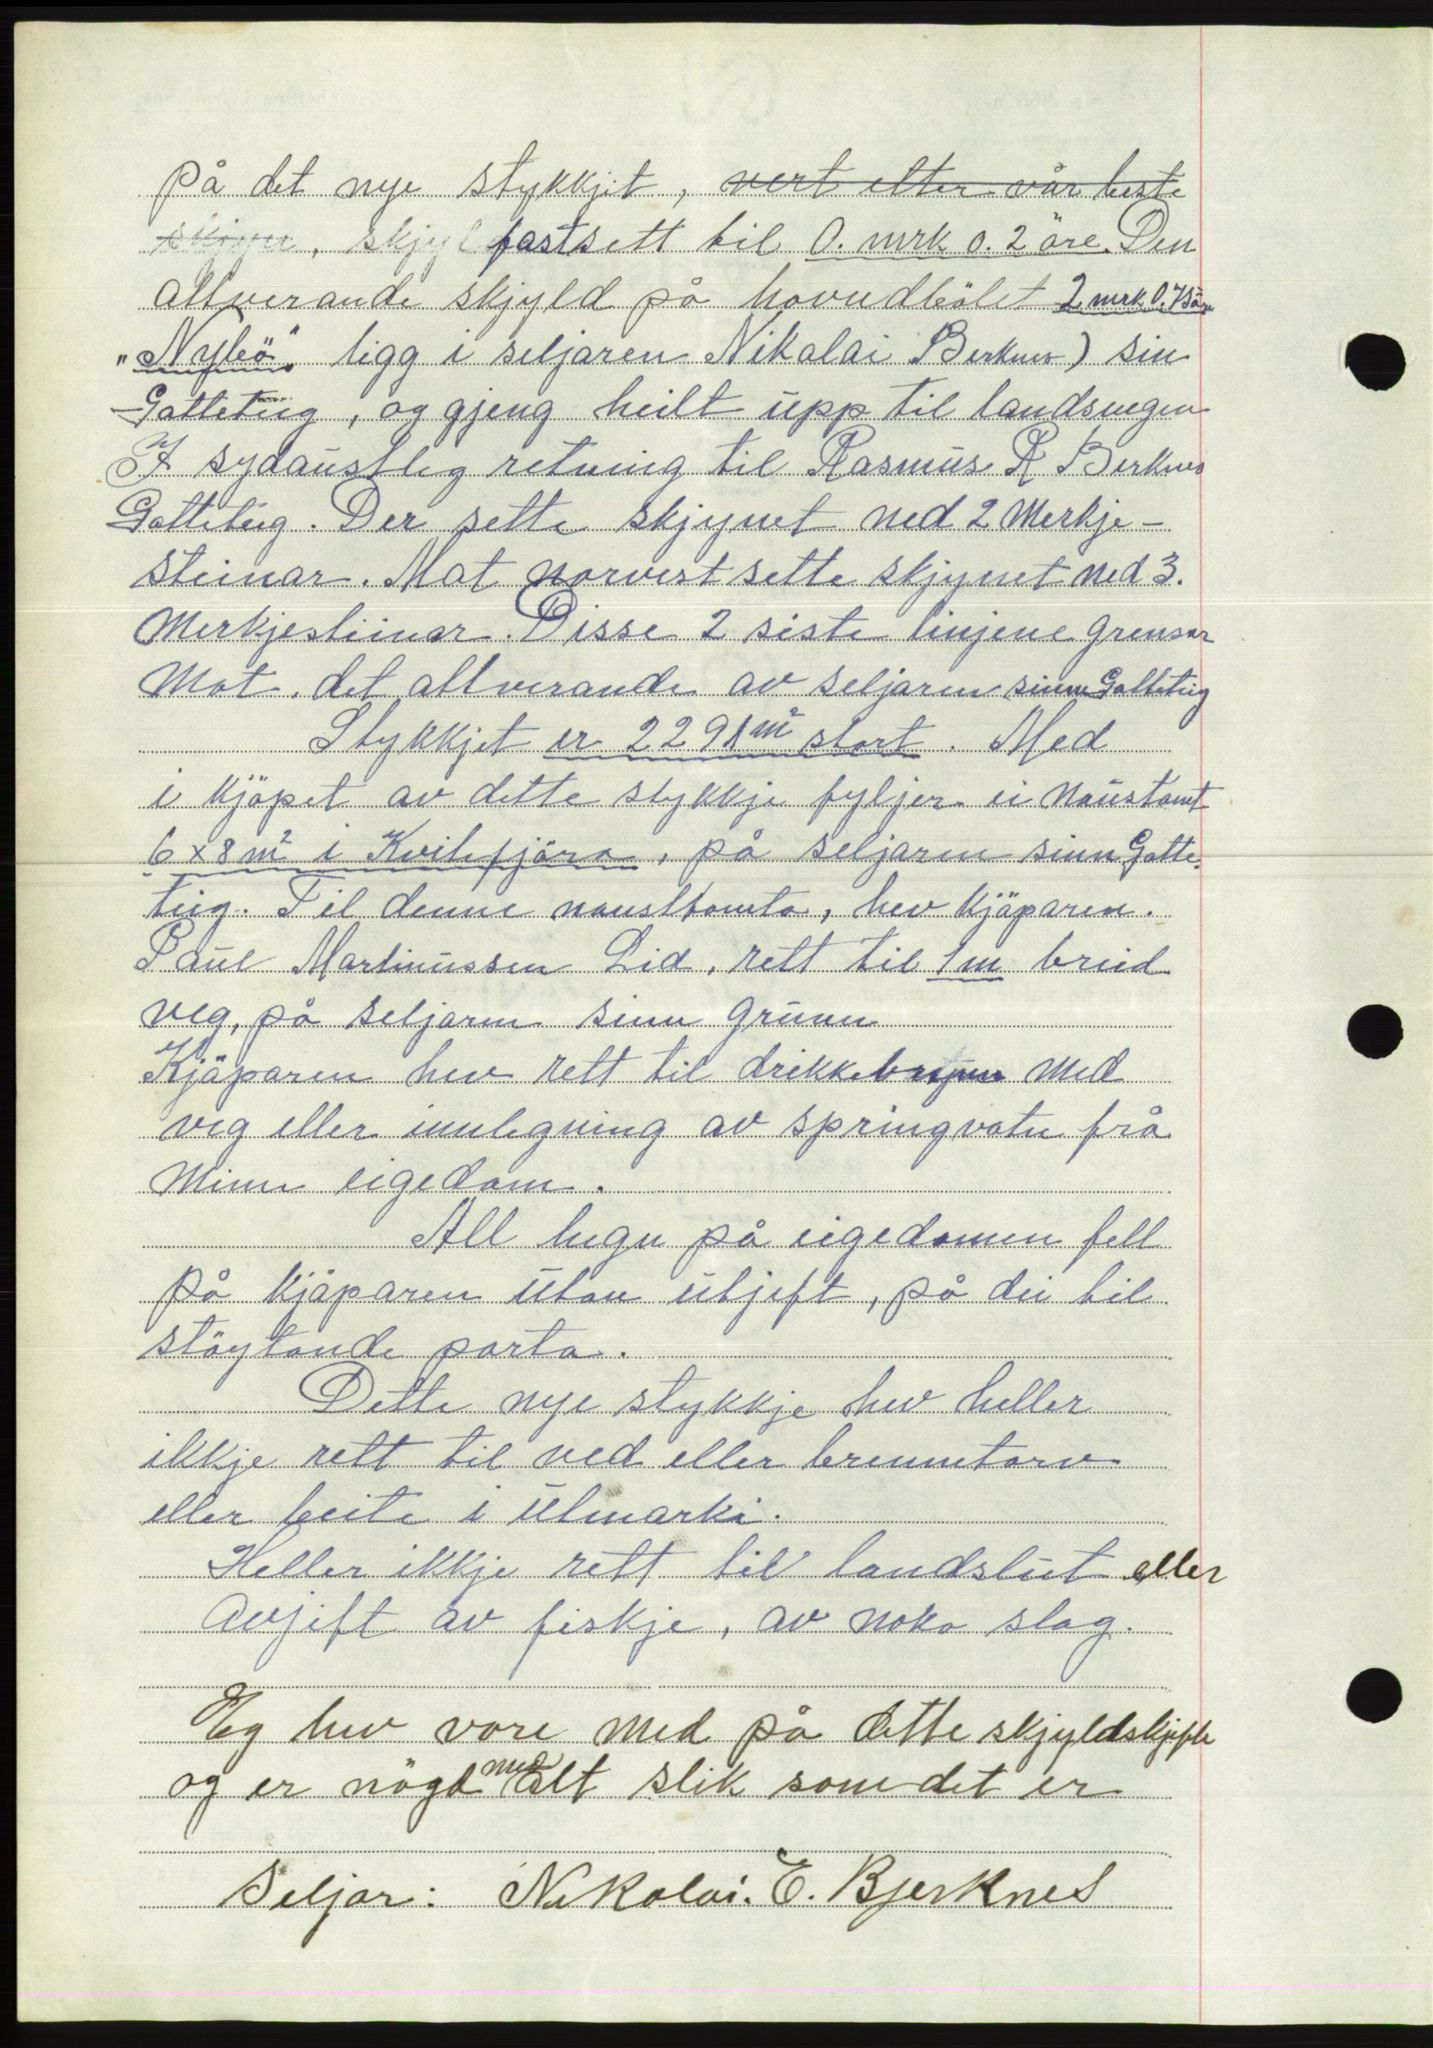 på det nye stykkjet, vert etter vår beste
skjyn, skjyl fastsett til 0. mrk 0. 2 öre. Den
attverande skjyld på hovudbölet 2 mrk. 0.
"Nybö" ligg i seljaren Nikolai Berknes) sin
Gatteteig, og gjeng heilt upp til landsvegen
I sydaustleg retning til Rasmus R Berknes
Gatteteig. Der sette skjynet ned 2 Merkje-
steinar. Mot norvest sette skjynet ned 3.
Merkjesteinar. Disse 2 siste linjene grensar
Mot. det attverande av seljaren sinn Gatteteig
Stykkjet er 2291 m² stort. Med
i kjöpet av dette stykkje fyljer ei Naustomt
6x8 m² i Kvilefjöra, på seljaren sinn Gatte-
teig. Til denne nausttomta, hev kjöparen.
Paul Martinussen Lid, rett til 1 m breid
veg, på seljaren sinn grunn
Kjöparen hev rett til drikkebrynn med
veg eller innlegning av springvatn frå
Minn eigedom.
All hegn på eigedomen fell
på kjöparen utan utjeft, på dei til
stöytande parta.
Dette nye stykkje hev heller
ikkje rett til ved eller brenntorv
eller beite i utmarki.
Heller ikkje rett til landslut eller
Avjift av fiskje, av noko slag.
Eg hev vore med på dette skjyldskjifte
og er nögd med alt slik som det er
Seljar: Nikolai. E. Bjerknes